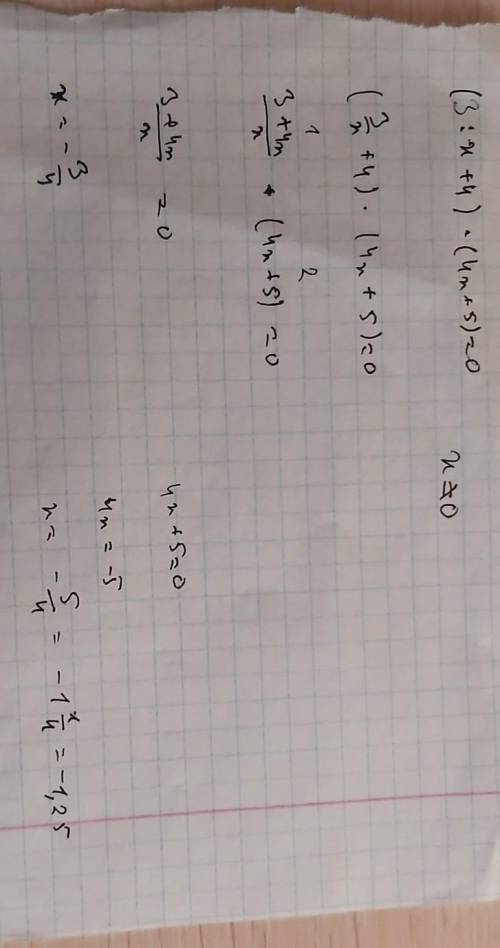 (3 : x + 4) · (4x + 5) = 0   x ≠ 0
(3/x + 4) · (4x + 5) = 0
1   2
(3 + 4x)/x · (4x + 5) = 0
(3 + 4x)/x = 0   4x + 5 = 0
4x = -5
x = -3/4   x = -5/4 = -1 1/4 = -1,25